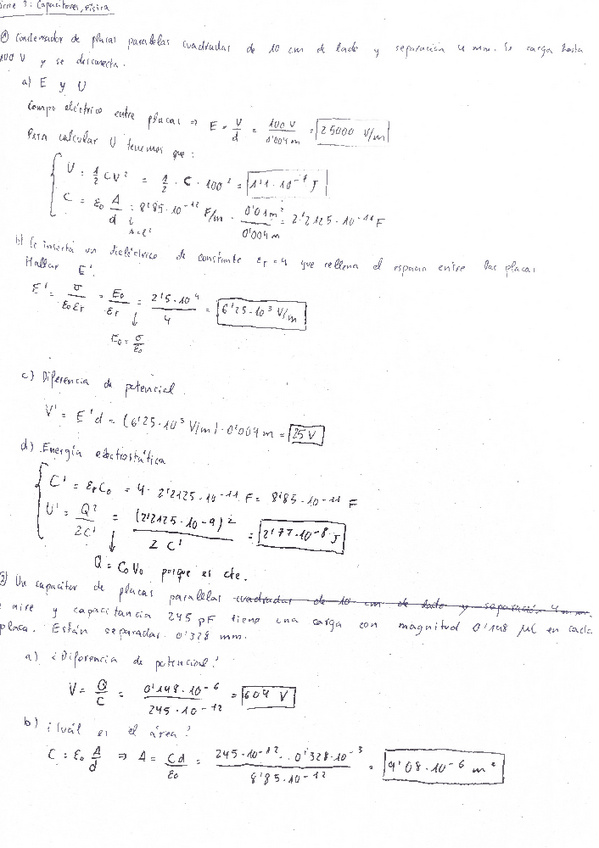 Serie 3: Capacitores, Física
condensador de placas paralelas cuadradas de 10 cm de lado y separación 4 mm. Se carga hasta
100 V y se desconecta.
a) E y U
Campo eléctrico entre placas ⇒ E = V/d = 100 V/0'004 m = 25000 V/m
Para calcular U tenemos que:
U = 1/2 CV² = 1/2 · C · 100² = 1'1 · 10⁻⁷ J
C = ε₀ A/d = 8'85 · 10⁻¹² F/m · 0'01 m²/0'004 m = 2'2125 · 10⁻¹¹ F
A = l²
b) Se inserta un dieléctrico de constante εr = 4 que rellena el espacio entre las placas
Hallar E'.
E' = σ/ε₀εr = E₀/εr = 2'5 · 10⁴/4 = 6'25 · 10³ V/m
E₀ = σ/ε₀
c) Diferencia de potencial
V' = E'd = (6'25 · 10³ V/m) · 0'004 m = 25 V
d) Energía electrostática
C' = εrC₀ = 4 · 2'2125 · 10⁻¹¹ F = 8'85 · 10⁻¹¹ F
U' = Q²/2C' = (2'2125 · 10⁻⁹)²/2C' = 2'77 · 10⁻⁸ J
Q = C₀V₀ porque es cte.
Un capacitor de placas paralelas cuadradas de 10 cm de lado y separació 4 mm.
de aire y capacitancia 245 pF tiene una carga con magnitud 0'148 μC en cada
placa. Están separadas 0'328 mm.
a) ¿Diferencia de potencial?
V = Q/C = 0'148 · 10⁻⁶/245 · 10⁻¹² = 604 V
b) ¿Cuál es el área?
C = ε₀ A/d ⇒ A = Cd/ε₀ = 245 · 10⁻¹² · 0'328 · 10⁻³/8'85 · 10⁻¹² = 9'08 · 10⁻⁶ m²